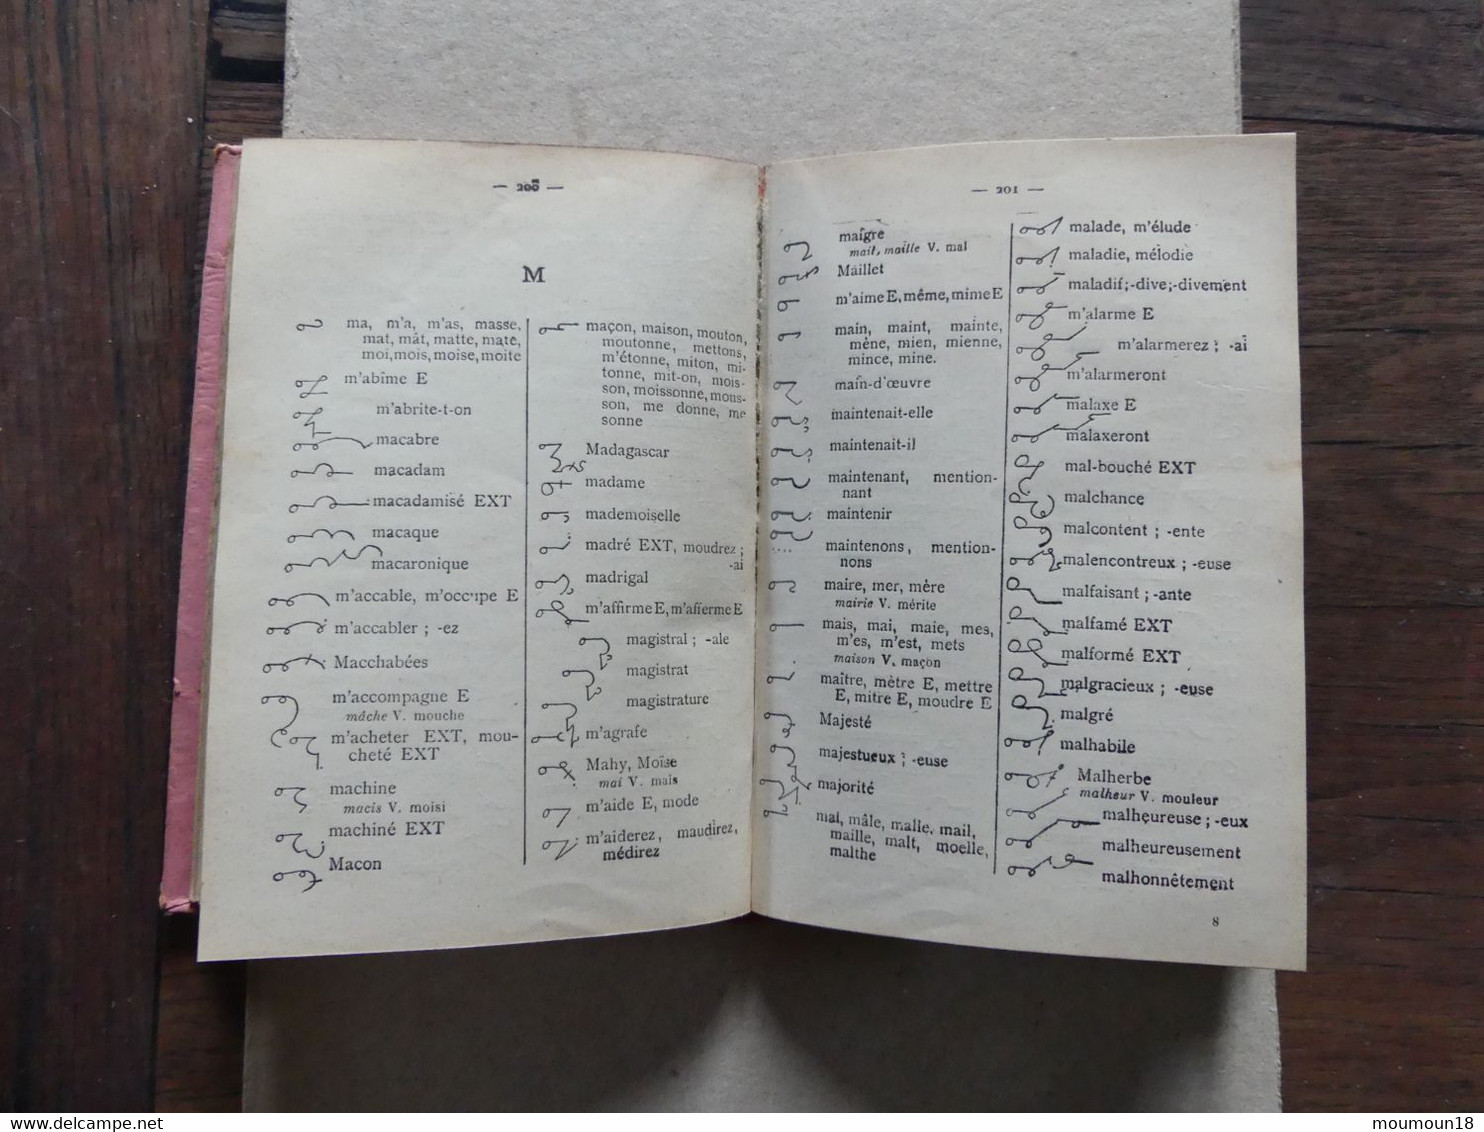 — 200 —
M
ma, m'a, m'as, masse,
mat, mât, matte, mate,
moi, mois, moise, moite
m'abîme E
m'abrite-t-on
macabre
macadam
macadamisé EXT
macaque
macaronique
m'accable, m'occupe E
m'accabler ; -ez
Macchabées
m'accompagne E
mâche V. mouche
m'acheter EXT, mou-
cheté EXT
machine
macis V. moisi
machiné EXT
Macon
maçon, maison, mouton,
moutonne, mettons,
m'étonne, miton, mi-
tonne, mit-on, mois-
son, moissonne, mous-
son, me donne, me
sonne
Madagascar
madame
mademoiselle
madré EXT, moudrez ;
-ai
madrigal
m'affirme E, m'afferme E
magistral ; -ale
magistrat
magistrature
m'agrafe
Mahy, Moïse
mai V. mais
m'aide E, mode
m'aiderez, maudirez,
médirez
— 201 —
maigre
mail, maille V. mal
Maillet
m'aime E, même, mime E
main, maint, mainte,
mène, mien, mienne,
mince, mine.
main-d'œuvre
maintenait-elle
maintenait-il
maintenant, mention-
nant
maintenir
maintenons, mention-
nons
maire, mer, mère
mairie V. mérite
mais, mai, maie, mes,
m'es, m'est, mets
maison V. maçon
maître, mètre E, mettre
E, mitre E, moudre E
Majesté
majestueux ; -euse
majorité
mal, mâle, malle, mail,
maille, malt, moelle,
malthe
malade, m'élude
maladie, mélodie
maladif ; -dive ; -divement
m'alarme E
m'alarmerez ; -ai
m'alarmeront
malaxe E
malaxeront
mal-bouché EXT
malchance
malcontent ; -ente
malencontreux ; -euse
malfaisant ; -ante
malfamé EXT
malformé EXT
malgracieux ; -euse
malgré
malhabile
Malherbe
malheur V. mouleur
malheureuse ; -eux
malheureusement
malhonnêtement
8
moumoun18